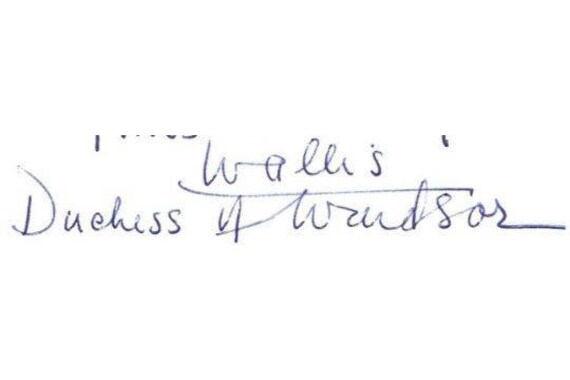 Wallis
Duchess of Windsor